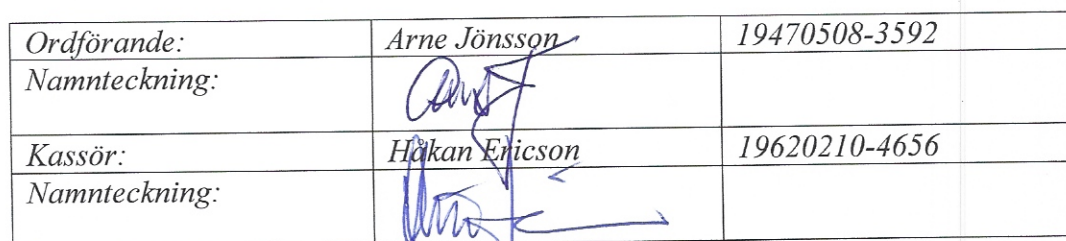 Ordförande: Arne Jönsson 19470508-3592
Namnteckning:
Kassör: Håkan Ericson 19620210-4656
Namnteckning: